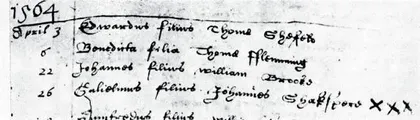 1564
April 3 Edwardus filius Thome Shefeld
6 Benedicta filia Thome Fflemming
22 Johannes filius William Brooks
26 Gulielmus filius Johannes Shakspere XXX
filius